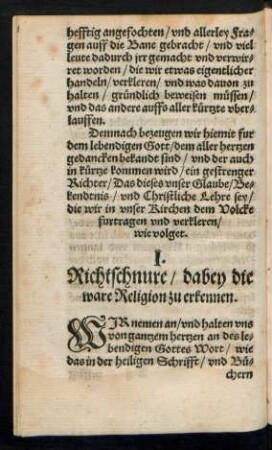 hefftig angefochten/ vnd allerley Fra-
gen auff die Bane gebracht/ vnd viel
leute dadurch jrr gemacht vnd verwir-
ret worden/ die wir etwas eigentlicher
handeln/ verkleren/ vnd was dauon zu
halten/ gründlich beweisen müssen/
vnd das andere auffs aller kürtzte vber-
lauffen.
Demnach bezeugen wir hiemit fur
dem lebendigen Gott/ dem aller hertzen
gedancken bekandt sind/ vnd der auch
in kürtze kommen wird/ ein gestrenger
Richter/ Das dieses vnser Glaube/ Be-
kendtnis/ vnd Christliche Lehre sey/
die wir in vnser Kirchen dem Volcke
furtragen vnd verkleren/
wie volget.
I.
Richtschnure/ dabey die
ware Religion zu erkennen.
WIR nemen an/ vnd halten vns
von gantzem hertzen an des le-
bendigen Gottes Wort/ wie
das in der heiligen Schrifft/ vnd Bü-
chern